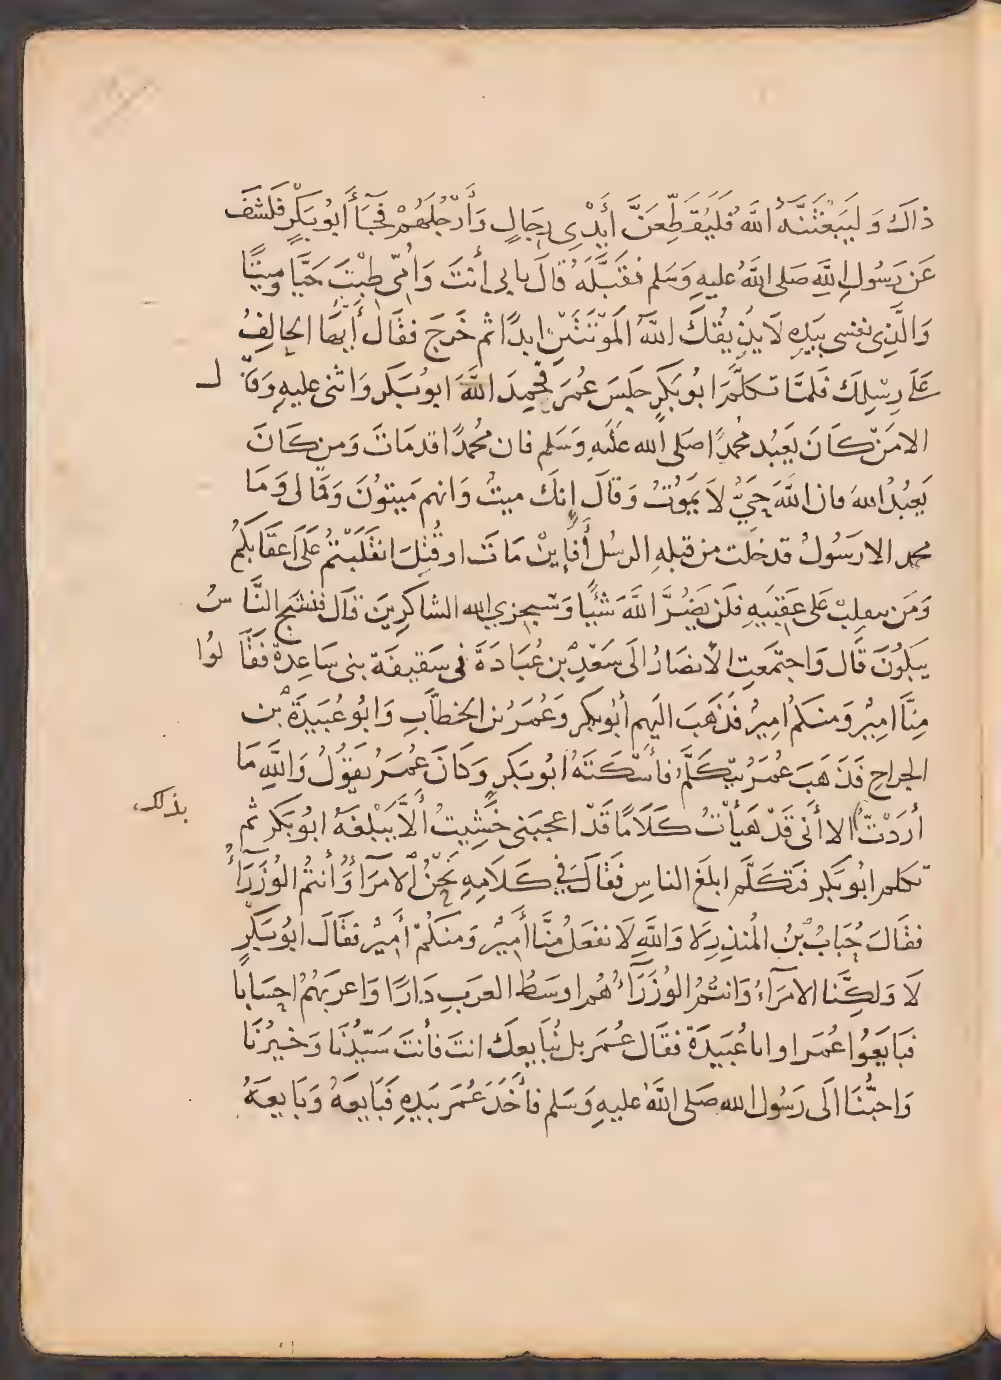 ذاك وَلَيَبْعَثَنَّهُ اللَّهُ فَلَيُقَطِّعَنَّ أَيْدِي رِجَالٍ وَأَرْجُلَهُمْ فَجَآءَ أَبُو بَكْرٍ فَكَشَفَ
عَن رَسُولِ اللَّهِ صَلى اللَّهُ عليهِ وَسَلم فقَبَّلَهُ قَالَ بابي أنتَ وَأُمِّي طِبْتَ حَيًّا وميتًا
وَالَّذِي نفسي بيَدِهِ لَا يُذِيقُكَ اللَّهُ المَوْتَتَيْنِ ابدًا ثم خَرَجَ فقَالَ أَيُّهَا الحالِفُ
عَلَى رِسْلِكَ فَلمَّا تكَلَّمَ ابُو بَكرٍ جلَسَ عُمَرَ فحَمِدَ اللَّهَ ابُو بَكر وَاثنى عليهِ وَقَال
الا مَنْ كَانَ يَعبُد محُمدًا صَلى الله عَلَيهِ وَسَلم فان محُمدًا قد مَاتَ وَمن كَانَ
يَعبُدُ اللهَ فان اللَّهَ حَيٌّ لَا يَمَوُتُ وَقالَ إِنكَ ميتٌ وَانهم مَيتوُنَ وَقَالَ وَمَا
محمد الا رَسُولُ قد خلت من قبلهِ الرسُل أَفَإِينْ مَاتَ او قُتِلَ انقَلَبْتمُ عَلَى اعقَابكُم
وَمَن ينقلِبْ عَلى عَقِبَيهِ فلَن يَضُرَّ اللَّهَ شَيْئًا وَسَيجزي الله الشاكرِينَ قال فنشَج النَّاسُ
يبكوُنَ قَال وَاجتمَعتِ الأنصَارُ الَى سَعْدِ بْن عُبَادَةَ في سَقيفَة بنى سَاعِدة فقَالوُا
مِنَّا امِيرٌ وَمنكم امِيرٌ فذهَبَ اليهم أبُو بكر وَعُمَرُ بن الخطَّابِ وَابُو عُبَيدَة بْن
الجراحِ فَذهَبَ عُمَرُ يتكَلَّمُ فأسْكَتَهُ ابُو بَكرٍ وَكانَ عُمَرُ يَقوُلُ وَاللَّهِ مَا
أرَدْتُّ الا أَنى قَدْ هَيأْتُ كَلَامًا قَدْ اعجبَنى خَشِيتُ أَلَّا يَبْلغَهُ ابُو بَكرٍ ثم
بذلك
تكلم ابُو بَكر فتكَلَّم ابلغَ الناسِ فَقَالَ في كَلَامِهِ نَحْنُ الأمَرَآءُ وَأنتُمُ الوُزَرَآءُ
فقَالَ حُبَابُ بْنُ المُنذِرِ لَا وَاللَّهِ لَا نفعَلُ مِنَّا أَمِيرٌ وَمنكُمْ أَمِيرٌ فقَالَ ابُو بَكْرٍ
لَا وَلكِنَّا الامَرَآءُ وَانتُمُ الوُزَرَآءُ هُم اوسَطُ العرَبِ دَارًا وَاعربَهُمْ احسَابا
فبَايَعُوا عُمَر اوابا عُبَيدَةَ فقَال عُمَر بل نُبايعكَ انتَ فأنتَ سَيّدُنَا وَخَيرُنَا
وَاحبُّنَا الَى رَسُول الله صَلى اللَّهُ عليهِ وَسَلم فأخَذَ عُمَر بيَدِهِ فَبَايعَهُ وَبَايعَهُ